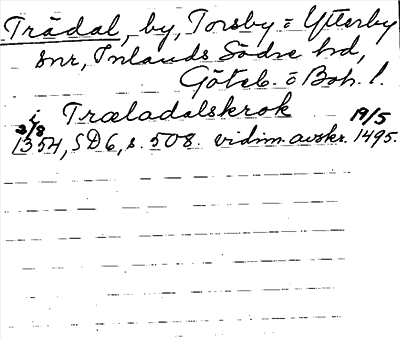 Trädal, by, Torsby o Ytterby
snr, Inlands Södre hd,
Göteb. o Boh. l.
i Træladalskrok
3/8 1354, SD6, s. 508. vidim. avskr. 19/5 1495.